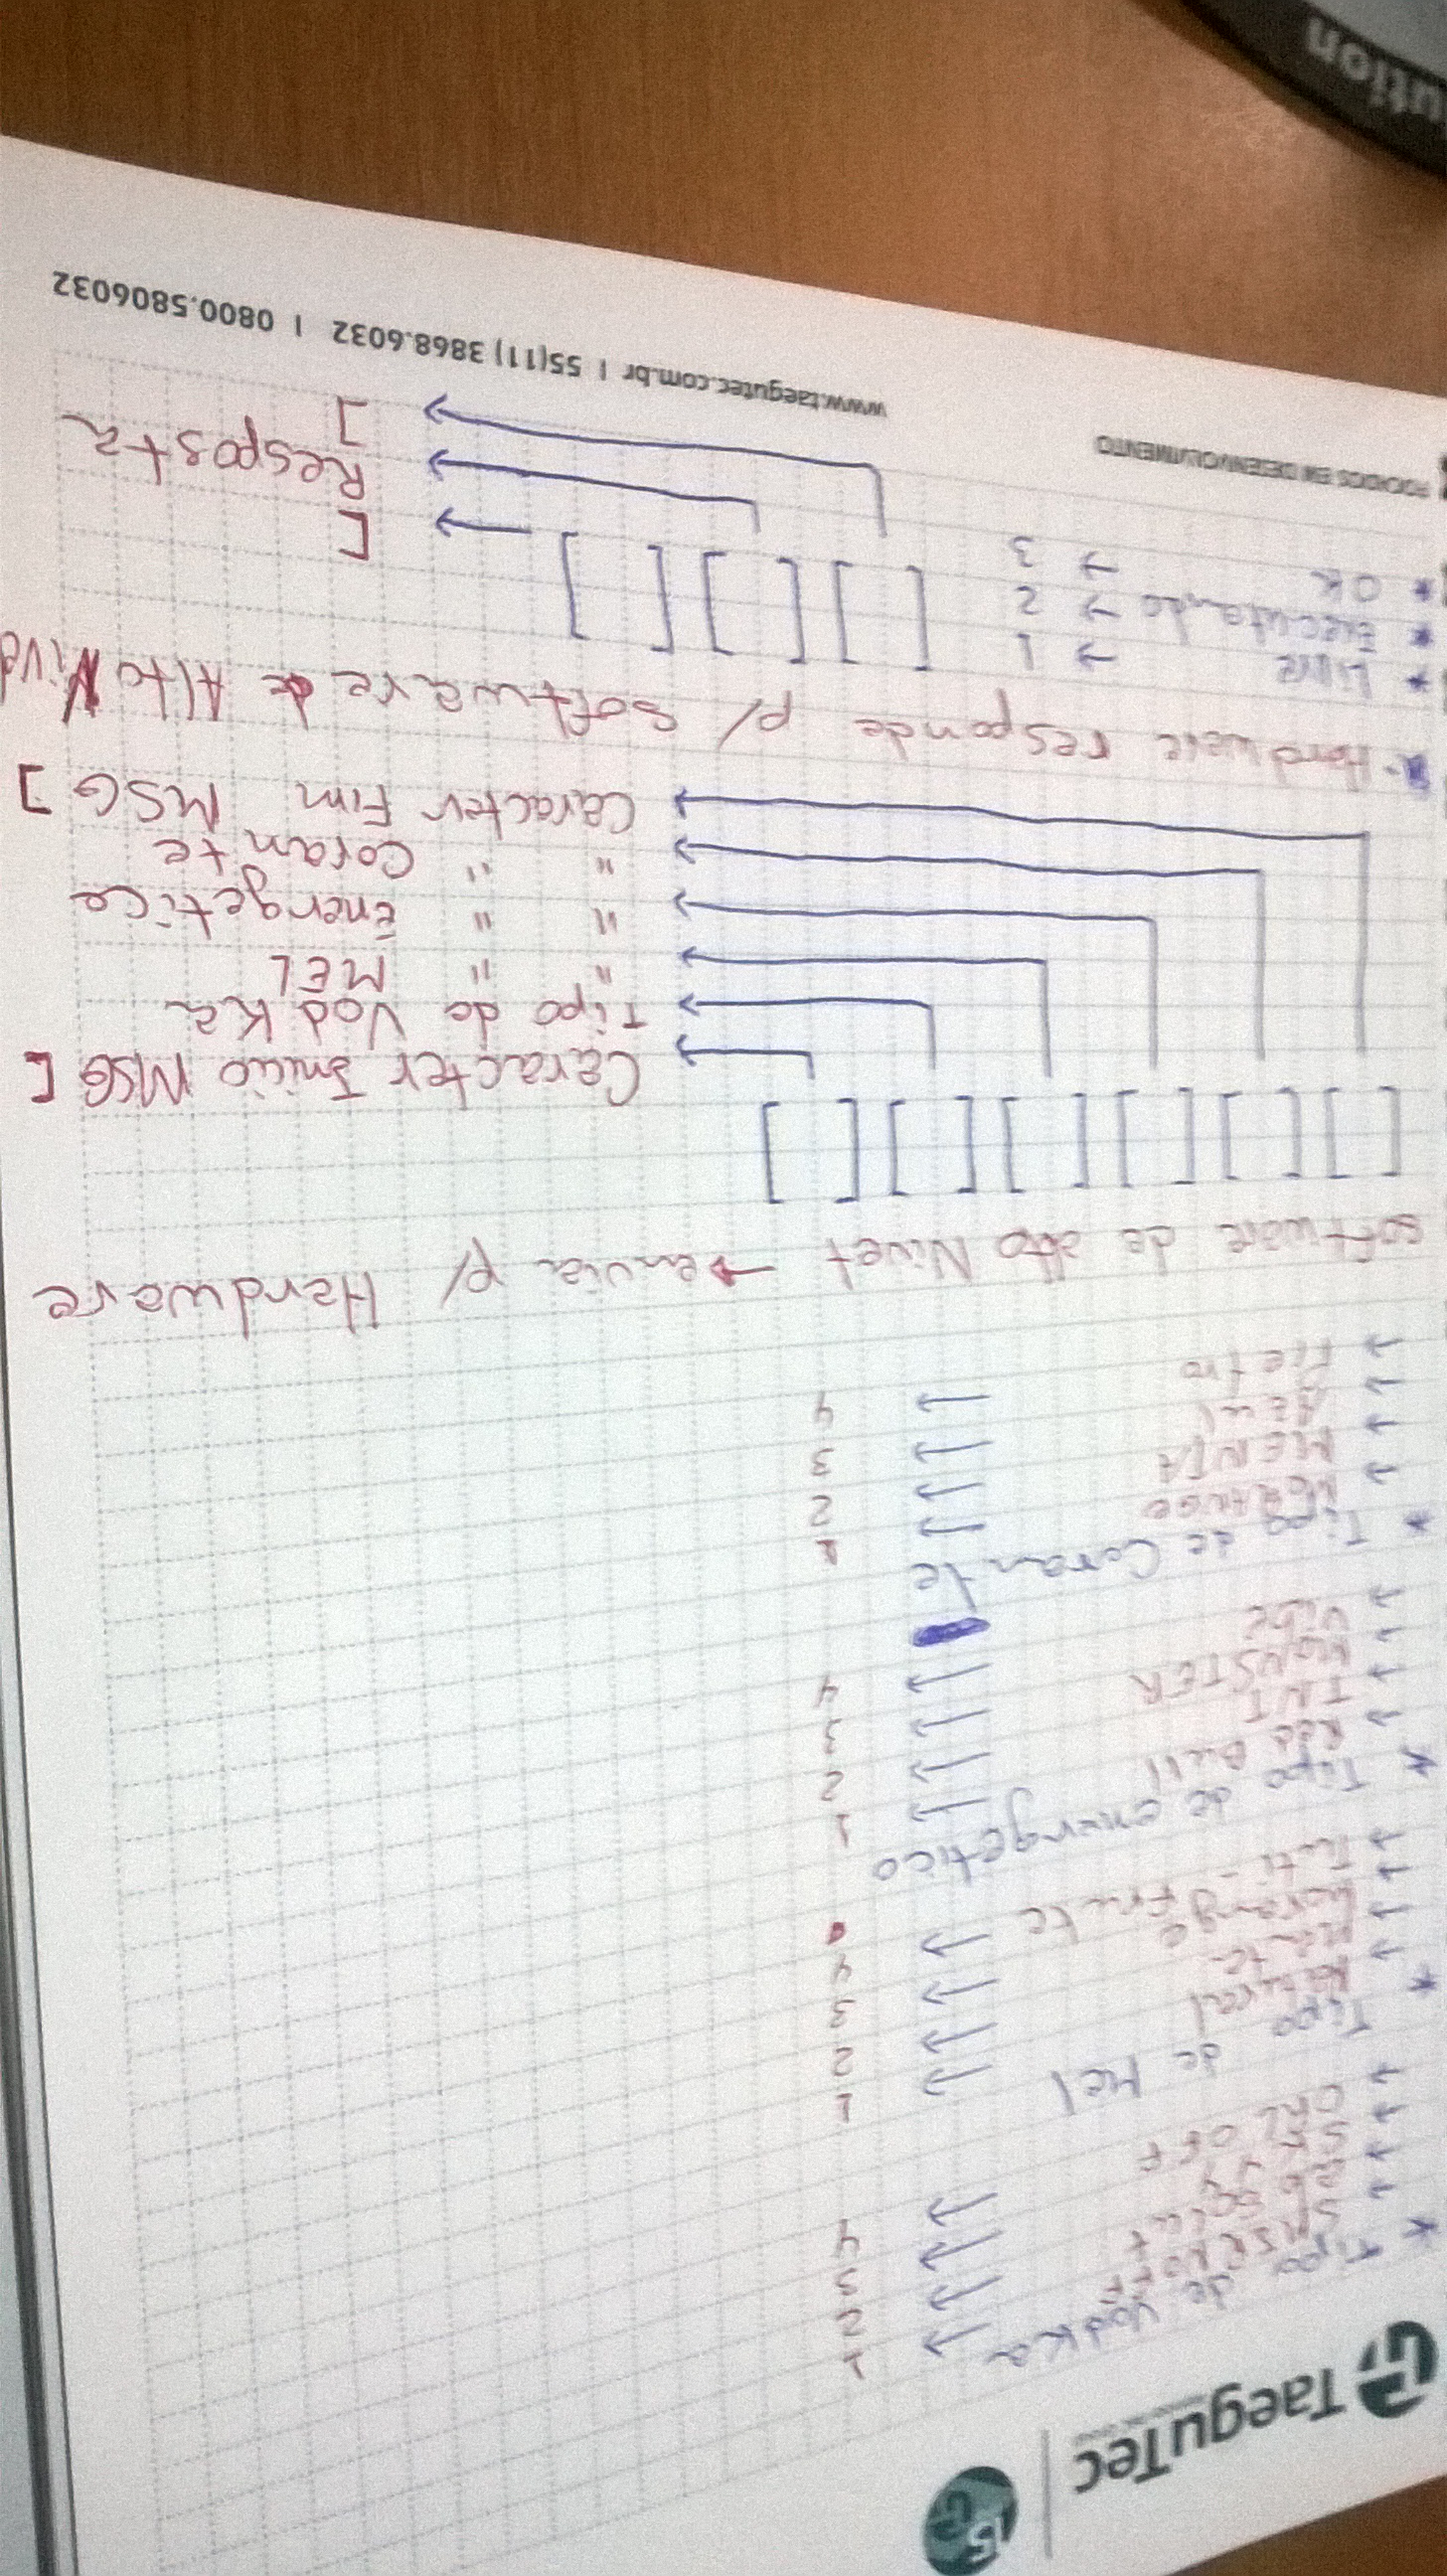 TaeguTec
15
* Tipo de Vodka
→ SMIRNOFF → 1
→ absolut → 2
→ SKYY → 3
→ ORLOFF → 4
* Tipo de Mel
→ Natural → 1
→ Menta → 2
→ Morango → 3
→ Tuti-Frute → 4
* Tipo de energetico
→ Red Bull → 1
→ TNT → 2
→ MONSTER → 3
→ Vibe → 4
* Tipo de Corante
→ MORANGO → 1
→ MENTA → 2
→ Azul → 3
→ Pretro → 4
software de alto Nivel → envia p/ Hardware
[ ] [ ] [ ] [ ] [ ] [ ]
→ Caracter Inicio MSG [
→ Tipo de Vodka
→ " " MEL
→ " " Energetico
→ " " Corante
→ Caracter Fim MSG ]
Hardware responde p/ software de Alto Nivel
* Livre → 1
* Executando → 2
* OK → 3
[ ] [ ] [ ] → [
→ Resposta
→ ]
FOCADOS EM DESENVOLVIMENTO
www.taegutec.com.br | 55(11) 3868.6032 | 0800.5806032
ution